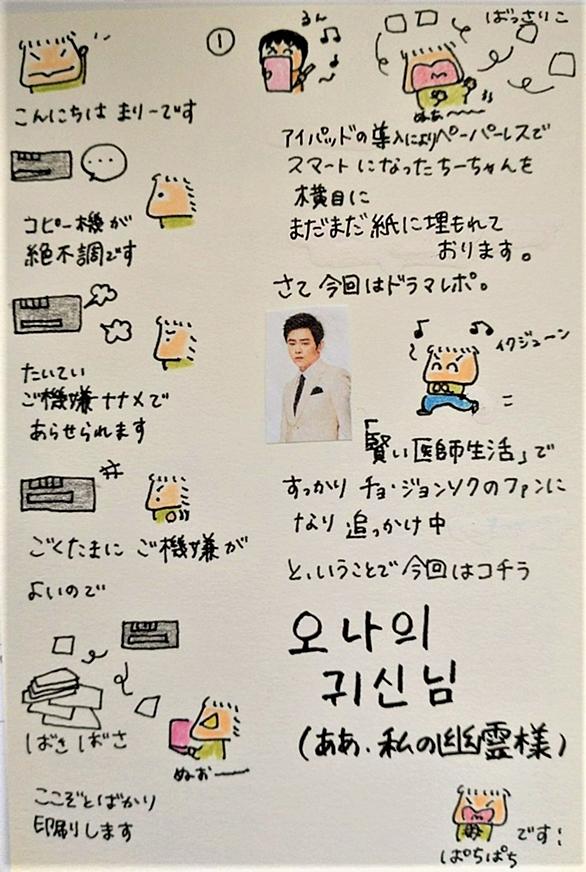 こんにちは まりーです
コピー機が
絶不調です
たいてい
ご機嫌ナナメで
あらせられます
ごくたまに ご機嫌が
よいので
ばさばさ
ぬぉー
ここぞとばかり
印刷します
①
るん
ばっさりこ
ぬぁ〜
アイパッドの導入によりペーパーレスで
スマートになったちーちゃんを
横目に
まだまだ紙に埋もれて
おります。
さて 今回はドラマレポ。
イクジューン
「賢い医師生活」で
すっかり チョ・ジョンソクのファンに
なり 追っかけ中
と、いうことで 今回はコチラ
오 나의
귀신님
(ああ、私の幽霊様)
です!
ぱちぱち